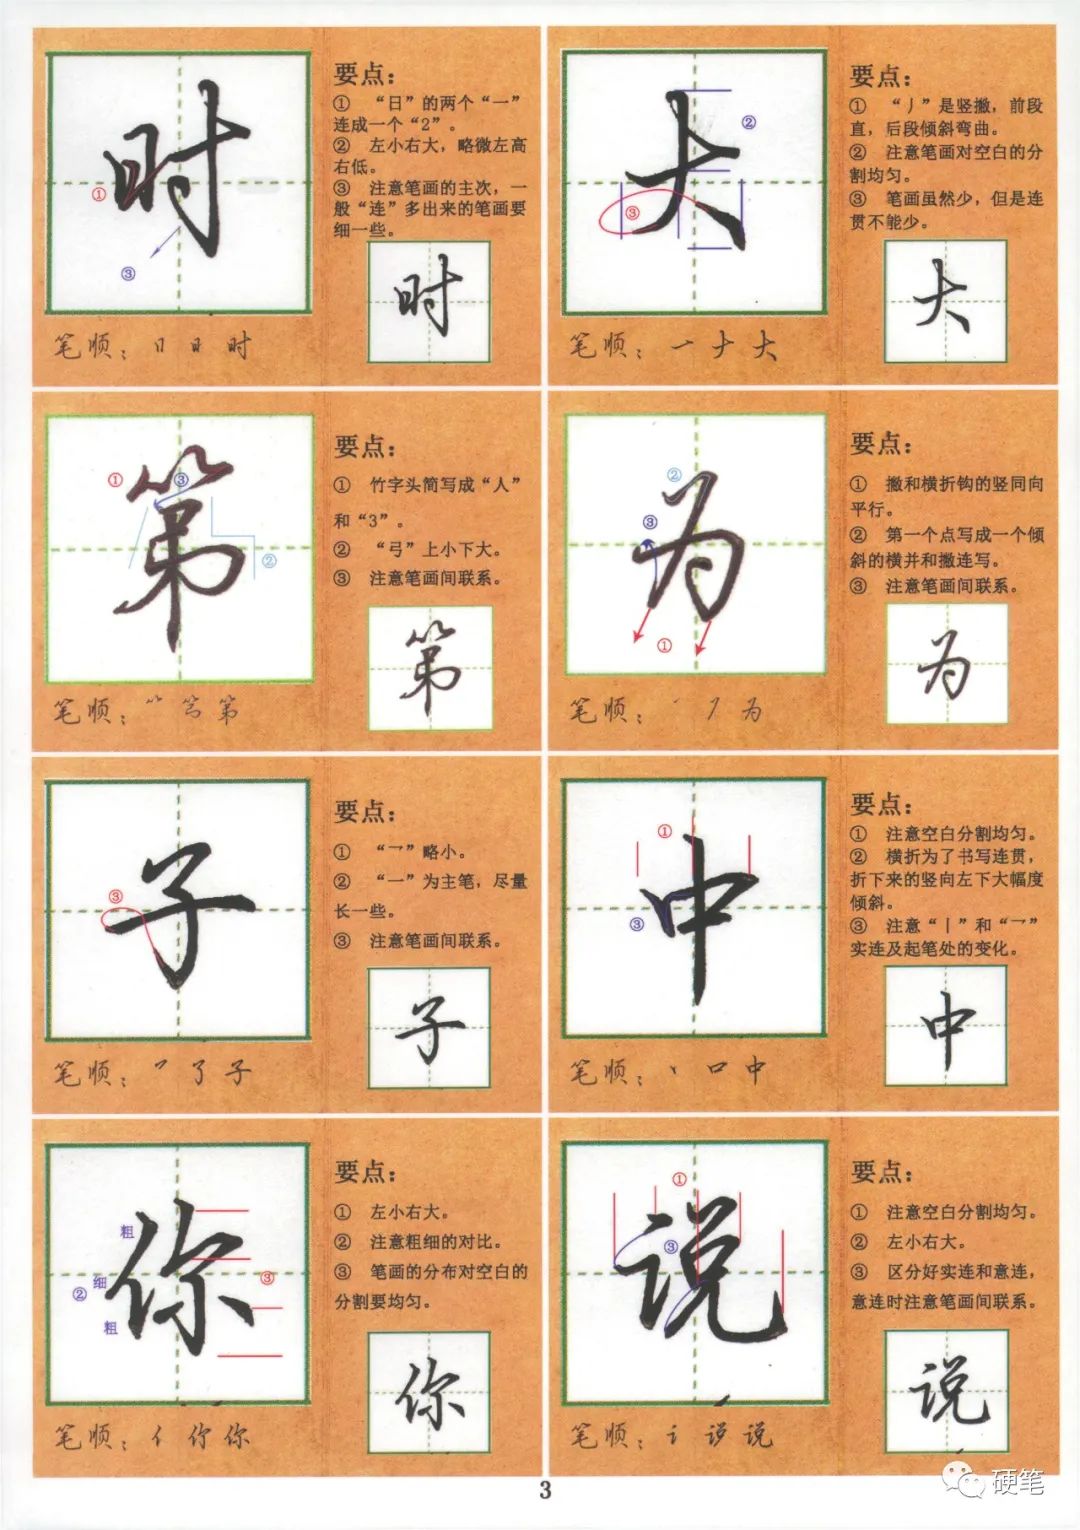 时
要点：
① “日”的两个“一”
连成一个“2”。
② 左小右大，略微左高
右低。
③ 注意笔画的主次，一
般“连”多出来的笔画要
细一些。
①
③
时
笔顺：日 时
大
要点：
① “丿”是竖撇，前段
直，后段倾斜弯曲。
② 注意笔画对空白的分
割均匀。
③ 笔画虽然少，但是连
贯不能少。
②
③
大
笔顺：一 ナ 大
第
要点：
① 竹字头简写成“人”
和“3”。
② “弓”上小下大。
③ 注意笔画间联系。
①
③
②
第
笔顺：第
为
要点：
① 撇和横折钩的竖同向
平行。
② 第一个点写成一个倾
斜的横并和撇连写。
③ 注意笔画间联系。
②
③
①
为
笔顺：为
子
要点：
① “乛”略小。
② “一”为主笔，尽量
长一些。
③ 注意笔画间联系。
③
子
笔顺：乛 了 子
中
要点：
① 注意空白分割均匀。
② 横折为了书写连贯，
折下来的竖向左下大幅度
倾斜。
③ 注意“丨”和“乛”
实连及起笔处的变化。
①
③
中
笔顺：丶 口 中
你
要点：
① 左小右大。
② 注意粗细的对比。
③ 笔画的分布对空白的
分割要均匀。
粗
② 细
粗
③
你
笔顺：亻 你
说
要点：
① 注意空白分割均匀。
② 左小右大。
③ 区分好实连和意连，
意连时注意笔画间联系。
①
③
说
笔顺：讠 说
3
硬笔